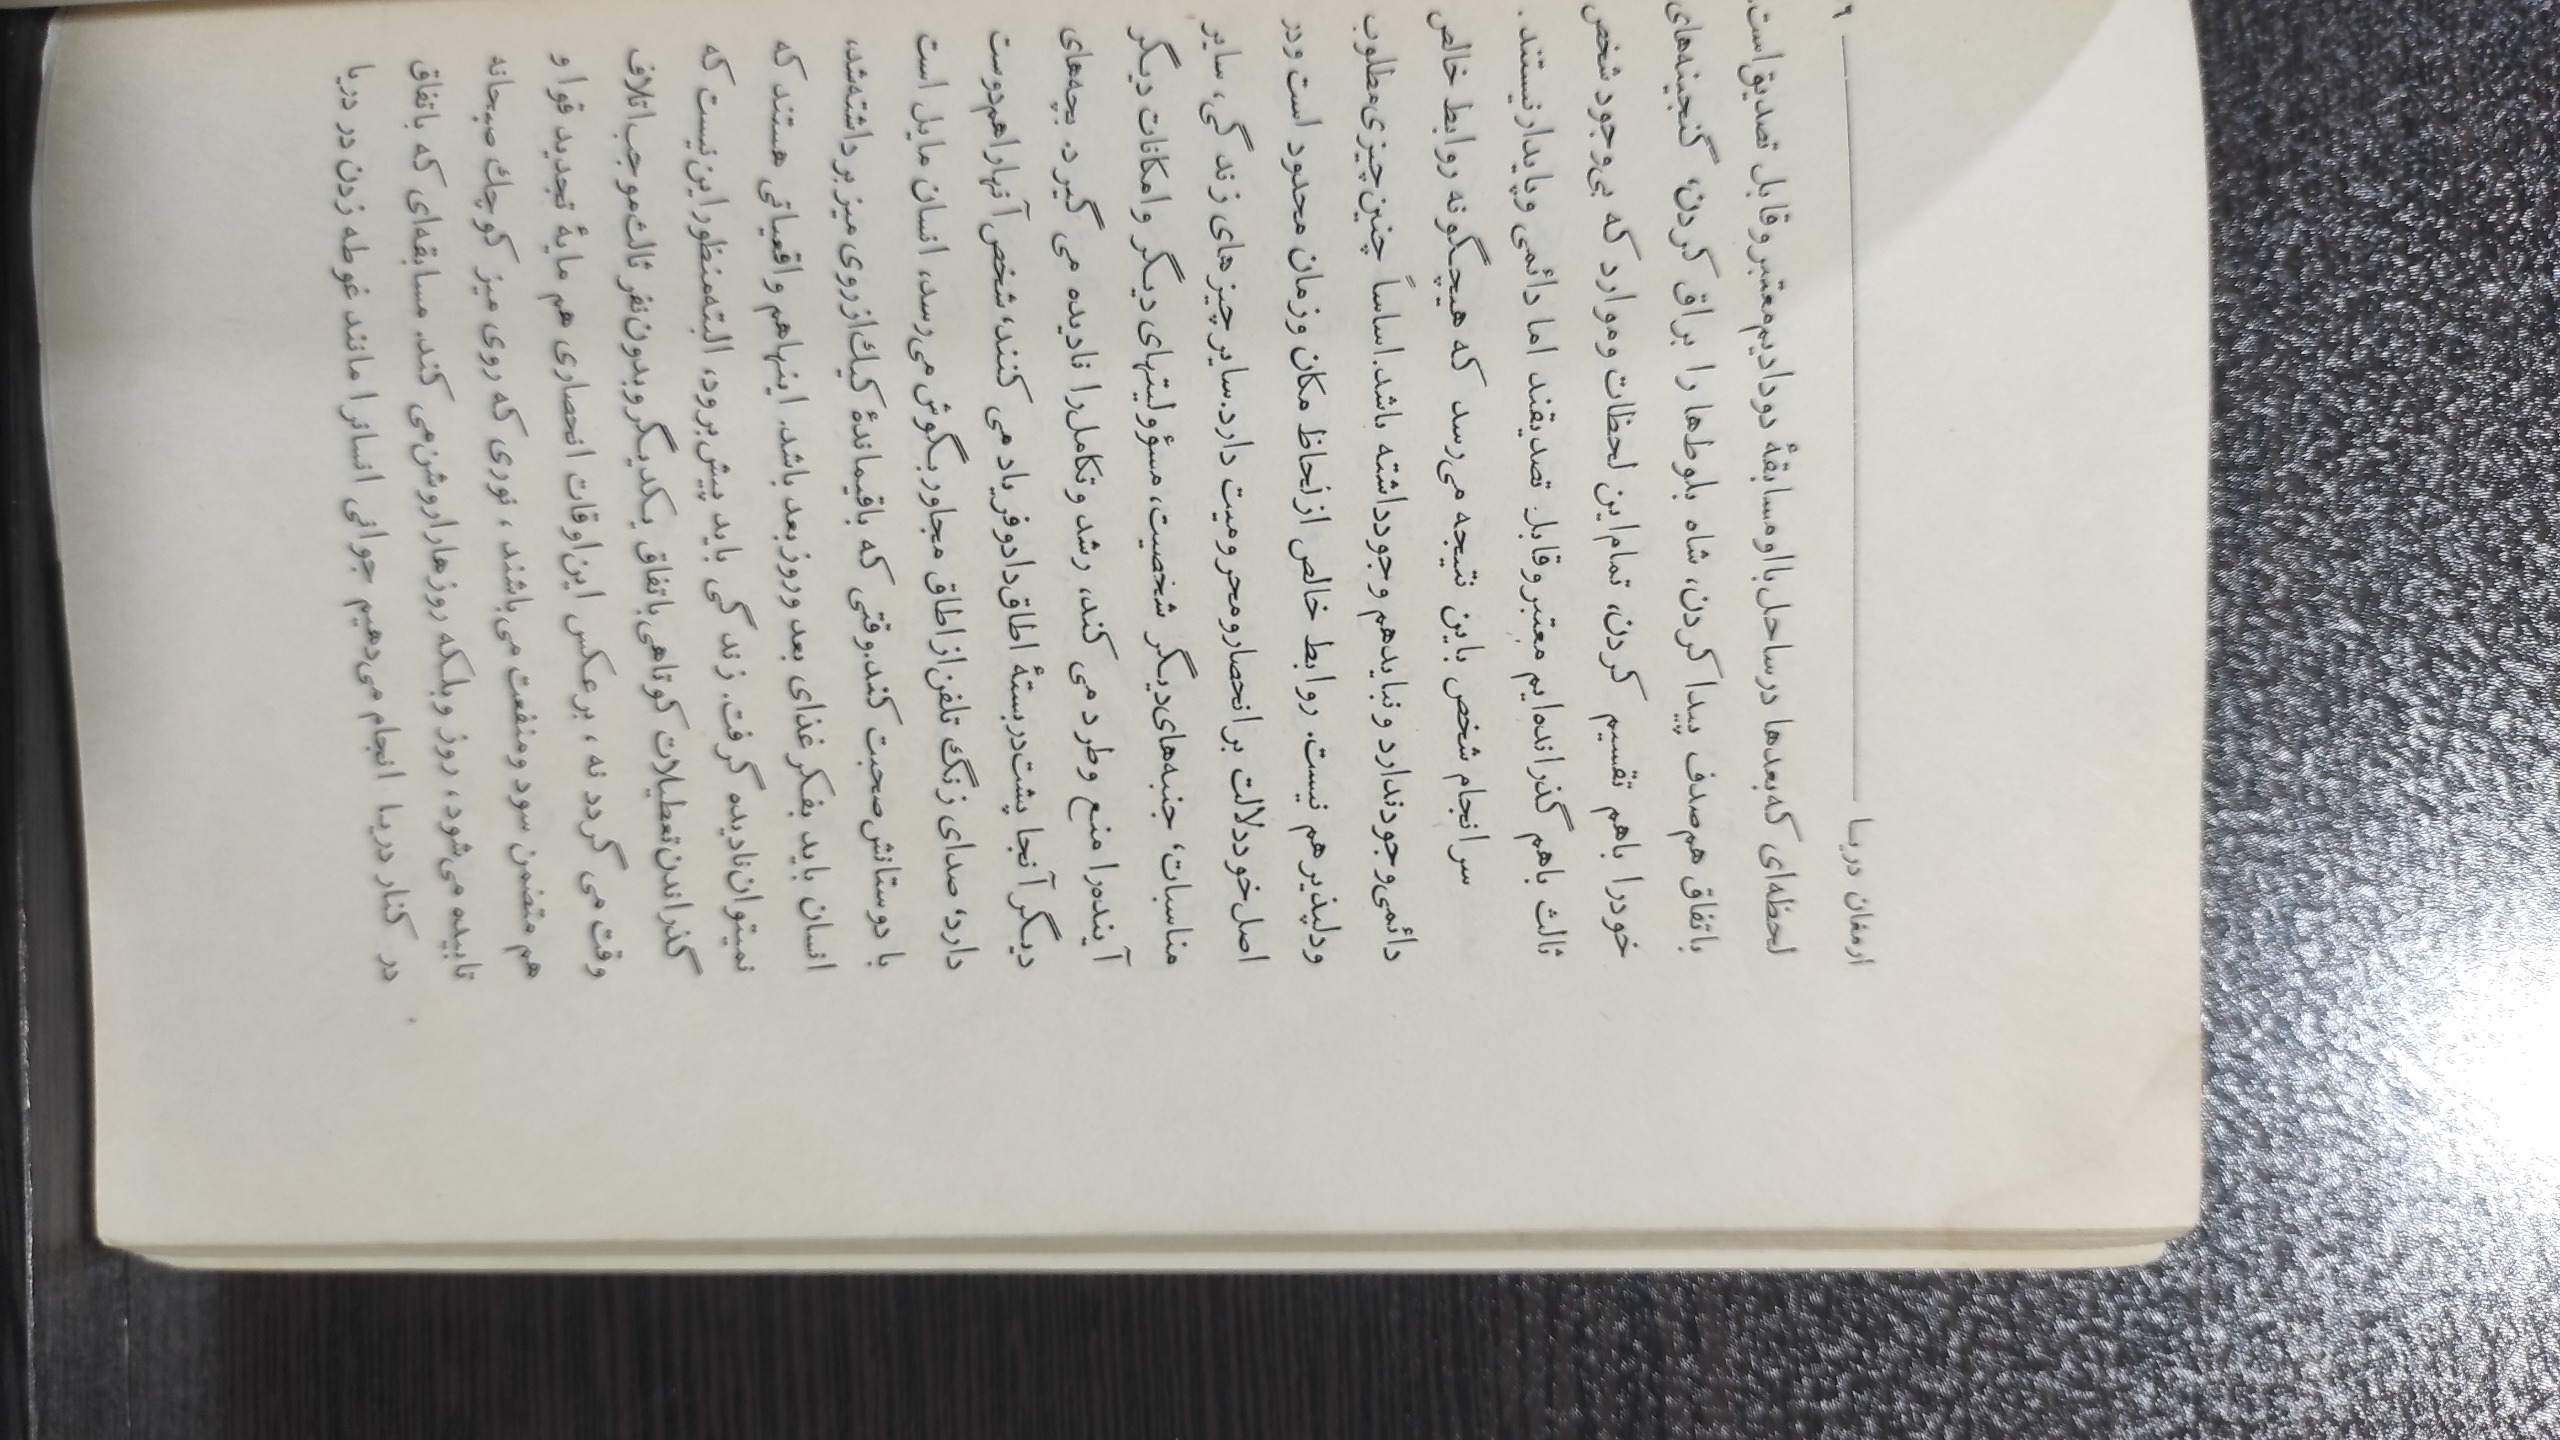 ارمغان دریا ۹
لحظه‌ای که بعدها درساحل بااومسابقهٔ دودادیم معتبروقابل تصدیق است.
باتفاق هم صدف پیدا کردن، شاه بلوطها را براق کردن، گنجینه‌های
خودرا باهم تقسیم کردن، تمام‌این لحظات وموارد که بی‌وجود شخص
ثالث باهم گذرانده‌ایم معتبر و قابل تصدیقند اما دائمی وپایدارنیستند.
سرانجام شخص باین نتیجه می‌رسد که هیچگونه روابط خالص
دائمی‌وجودندارد ونبایدهم وجودداشته باشد. اساساً چنین‌چیزی‌مطلوب
ودلپذیرهم نیست. روابط خالص ازلحاظ مکان وزمان محدود است ودر
اصل‌خوددلالت برانحصارومحرومیت دارد. سایرچیزهای زندگی، سایر
مناسبات، جنبه‌های‌دیگر شخصیت، مسؤولیتهای دیگر وامکانات دیگر
آینده‌را منع وطرد می‌کند، رشد وتکامل‌را نادیده می‌گیرد. بچه‌های
دیگرآنجا پشت‌دربستهٔ اطاق‌دادوفریاد می‌کنند، شخص‌آنهاراهم‌دوست
دارد؛ صدای زنگ تلفن‌ازاطاق مجاوربگوش می‌رسد، انسان مایل است
با دوستانش‌صحبت کند. وقتی که باقیماندهٔ کیك‌ازروی میزبرداشته‌شد،
انسان باید بفکرغذای بعد وروزبعد باشد. اینهاهم واقعیاتی هستند که
نمیتوان‌نادیده گرفت. زندگی باید پیش‌برود، البته‌منظوراین‌نیست که
گذراندن‌تعطیلات کوتاهی‌باتفاق یکدیگروبدون‌نفرثالث‌موجب‌اتلاف
وقت‌می‌گردد نه، برعکس این‌اوقات انحصاری هم مایهٔ تجدید قوا و
هم متضمن سود ومنفعت می‌باشند، نوری که روی میز کوچك صبحانه
تابیده می‌شود، روز وبلکه روزهاراروشن‌می‌کند. مسابقه‌ای که باتفاق
در کنار دریا انجام می‌دهیم جوانی انسانرا مانند غوطه زدن در دریا